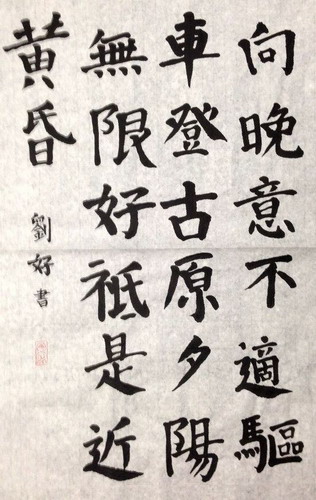 向晚意不適驅
車登古原夕陽
無限好祗是近
黄昏
劉好書